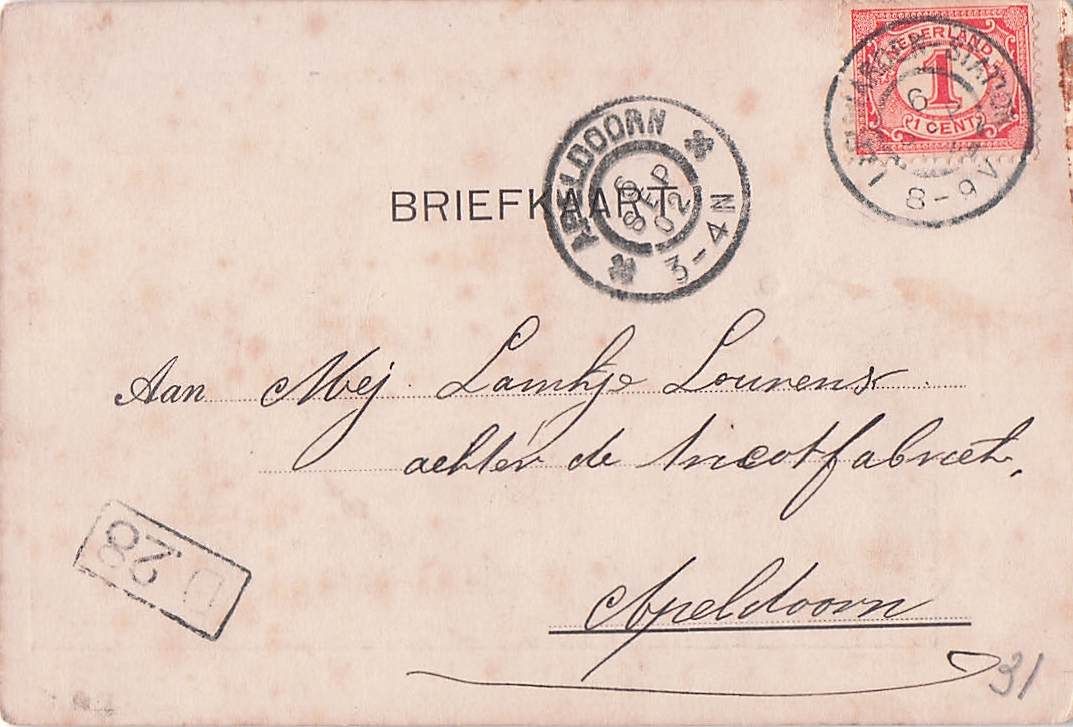 NEDERLAND
1
1 CENT
STATION
6
8-9V
APELDOORN
6
SEP
02
3-4N
BRIEFKAART
Aan Mej. Lamkje Lourens
achter de tricotfabriek,
28
Apeldoorn
31